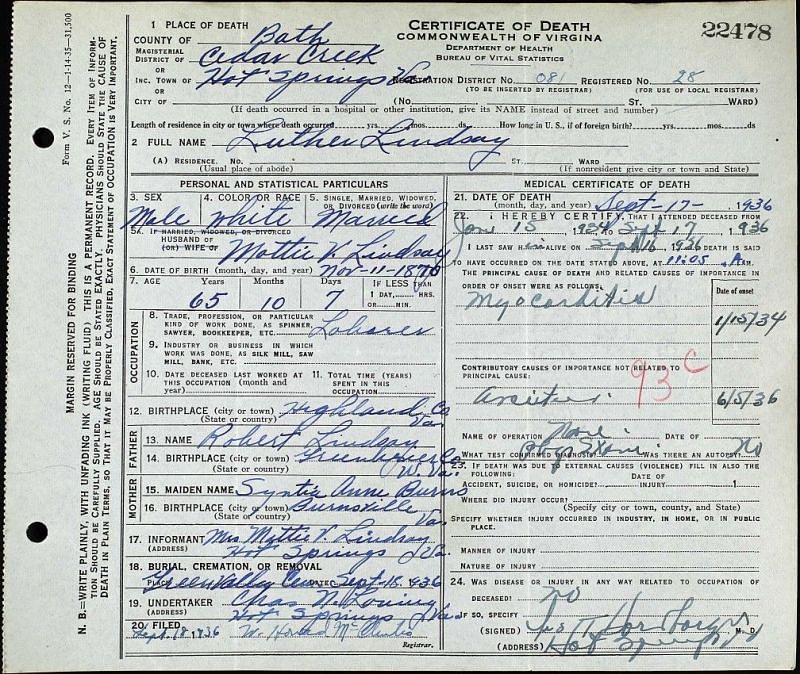 Form V. S. No. 12—1-14-35—31,500
MARGIN RESERVED FOR BINDING
N. B.—WRITE PLAINLY, WITH UNFADING INK (WRITING FLUID) THIS IS A PERMANENT RECORD. EVERY ITEM OF INFORMATION SHOULD BE CAREFULLY SUPPLIED. AGE SHOULD BE STATED EXACTLY. PHYSICIANS SHOULD STATE THE CAUSE OF DEATH IN PLAIN TERMS, SO THAT IT MAY BE PROPERLY CLASSIFIED. EXACT STATEMENT OF OCCUPATION IS VERY IMPORTANT.
1 PLACE OF DEATH
COUNTY OF Bath
MAGISTERIAL DISTRICT OF Cedar Creek
OR
INC. TOWN OF Hot Springs Va
OR
CITY OF
CERTIFICATE OF DEATH
COMMONWEALTH OF VIRGINIA
DEPARTMENT OF HEALTH
BUREAU OF VITAL STATISTICS
22478
REGISTRATION DISTRICT NO. 081 REGISTERED NO. 28
(TO BE INSERTED BY REGISTRAR) (FOR USE OF LOCAL REGISTRAR)
(No. ST. WARD)
(If death occurred in a hospital or other institution, give its NAME instead of street and number)
Length of residence in city or town where death occurred yrs. mos. ds. How long in U. S., if of foreign birth? yrs. mos. ds
2 FULL NAME Luther Lindsay
(A) RESIDENCE. NO. ST. WARD
(Usual place of abode) (If nonresident give city or town and State)
PERSONAL AND STATISTICAL PARTICULARS
3. SEX Male
4. COLOR OR RACE White
5. SINGLE, MARRIED, WIDOWED, OR DIVORCED (write the word) Married
5A. IF MARRIED, WIDOWED, OR DIVORCED
HUSBAND OF
(OR) WIFE OF Mattie V. Lindsay
6. DATE OF BIRTH (month, day, and year) Nov-11-1870
7. AGE Years Months Days IF LESS THAN
65 10 7 1 DAY, HRS.
OR MIN.
OCCUPATION
8. TRADE, PROFESSION, OR PARTICULAR KIND OF WORK DONE, AS SPINNER, SAWYER, BOOKKEEPER, ETC. Laborer
9. INDUSTRY OR BUSINESS IN WHICH WORK WAS DONE, AS SILK MILL, SAW MILL, BANK, ETC.
10. DATE DECEASED LAST WORKED AT THIS OCCUPATION (month and year)
11. TOTAL TIME (YEARS) SPENT IN THIS OCCUPATION
12. BIRTHPLACE (city or town) Highland Co
(State or country) Va.
FATHER
13. NAME Robert Lindsay
14. BIRTHPLACE (city or town) Greenbrier Co
(State or country) W. Va.
MOTHER
15. MAIDEN NAME Syntie Anne Burns
16. BIRTHPLACE (city or town) Burnsville
(State or country) Va.
17. INFORMANT Mrs Mattie V. Lindsay
(ADDRESS) Hot Springs Va.
18. BURIAL, CREMATION, OR REMOVAL
PLACE Green Valley Cem DATE Sept-18, 1936
19. UNDERTAKER Chas N. Loving
(ADDRESS) Hot Springs Va.
20. FILED Sept. 18, 1936
Registrar.
MEDICAL CERTIFICATE OF DEATH
21. DATE OF DEATH
(month, day, and year) Sept-17-, 1936
22. I HEREBY CERTIFY, THAT I ATTENDED DECEASED FROM
Jan 15, 1934 TO Sept 17, 1936
I LAST SAW H im ALIVE ON Sept 16, 1936 DEATH IS SAID
TO HAVE OCCURRED ON THE DATE STATED ABOVE, AT 11:05 A. M.
THE PRINCIPAL CAUSE OF DEATH AND RELATED CAUSES OF IMPORTANCE IN ORDER OF ONSET WERE AS FOLLOWS: Date of onset
Myocarditis 1/15/34
CONTRIBUTORY CAUSES OF IMPORTANCE NOT RELATED TO PRINCIPAL CAUSE:
93 C
Ascites. 6/5/36
NAME OF OPERATION None DATE OF
WHAT TEST CONFIRMED DIAGNOSIS? WAS THERE AN AUTOPSY? No
23. IF DEATH WAS DUE TO EXTERNAL CAUSES (VIOLENCE) FILL IN ALSO THE FOLLOWING:
ACCIDENT, SUICIDE, OR HOMICIDE? DATE OF INJURY 1
WHERE DID INJURY OCCUR?
(Specify city or town, county, and State)
SPECIFY WHETHER INJURY OCCURRED IN INDUSTRY, IN HOME, OR IN PUBLIC PLACE.
MANNER OF INJURY
NATURE OF INJURY
24. WAS DISEASE OR INJURY IN ANY WAY RELATED TO OCCUPATION OF DECEASED? NO
IF SO, SPECIFY
(SIGNED) M. D.
(ADDRESS) Hot Springs Va